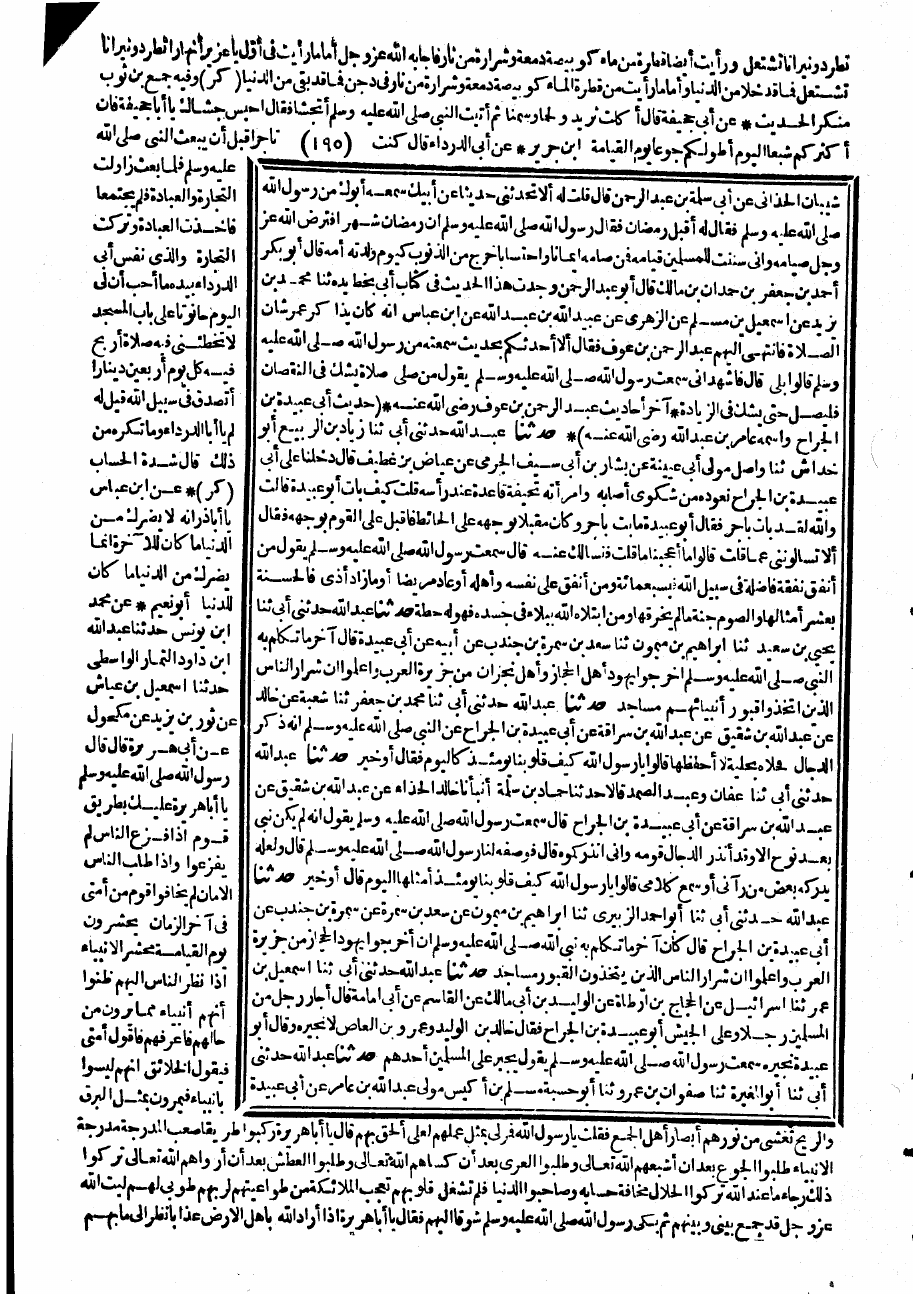 قطر دونيرانا تشتعل ورأيت أيضا قطرة من ماء كو بيصة دمعة وشرارة من نار فأجابه الله عز وجل أما ما رأيت في أول ياعزير أنهارا تطرد ونيرانا
تشتعل فما قد خلا من الدنيا وأما ما رأيت من قطرة الماء كو بيصة دمعة وشرارة من نار في دجن فما قد بقي من الدنيا (كر) وفيه جميع بن ثوب
منكر الحديث * عن أبي جحيفة قال أكلت ثريد ولحما وسمنا ثم أتيت النبي صلى الله عليه وسلم أتجشأ فقال احبس جشاءك يا أبا جحيفة فان
أكثركم شبعا اليوم أطولكم جوعا يوم القيامة ابن جرير * عن أبي الدرداء قال كنت (١٩٥) تاجرا قبل أن يبعث النبي صلى الله
عليه وسلم فلما بعث زاولت
التجارة والعبادة فلم يجتمعا
فأخذت العبادة وتركت
التجارة والذي نفس أبي
الدرداء بيده ما أحب أن لي
اليوم حانوتا على باب المسجد
لا تخطئني فيه صلاة أربح
فيه كل يوم أربعين دينارا
أتصدق في سبيل الله قيل له
لم يا أبا الدرداء وما تكره من
ذلك قال شدة الحساب
(كر) * عن ابن عباس
يا أباذر انه لا يضرك من
الدنيا ما كان للآخرة انما
يضرك من الدنيا ما كان
للدنيا أبو نعيم * عن محمد
ابن يونس حدثنا عبد الله
ابن داود التمار الواسطي
حدثنا اسمعيل بن عياش
عن ثور بن يزيد عن مكحول
عن أبي هريرة قال قال
رسول الله صلى الله عليه وسلم
يا أبا هريرة عليك بطريق
قوم اذا فزع الناس لم
يفزعوا واذا طلب الناس
الامان لم يخافوا قوم من أمتي
في آخر الزمان يحشرون
يوم القيامة محشر الانبياء
اذا نظر الناس اليهم ظنوا
أنهم أنبياء مما يرون من
حالهم فأعرفهم فأقول أمتي
فيقول الخلائق انهم ليسوا
بأنبياء فيمرون مثل البرق
والريح تغشى من نورهم أبصار أهل الجمع فقلت يا رسول الله فمر لي بمثل عملهم لعلي ألحق بهم قال يا أبا هريرة ركبوا طريقا صعب المدرجة مدرجة
الانبياء طلبوا الجوع بعد أن أشبعهم الله تعالى وطلبوا العرى بعد أن كساهم الله تعالى وطلبوا العطش بعد أن أرواهم الله تعالى تركوا
ذلك رجاء ما عند الله تركوا الحلال مخافة حسابه وصاحبوا الدنيا فلم تشغل قلوبهم تعجب الملائكة من طواعيتهم لربهم طوبى لهم ليت الله
عز وجل قد جمع بيني وبينهم ثم بكى رسول الله صلى الله عليه وسلم شوقا اليهم فقال يا أبا هريرة اذا أراد الله بأهل الارض عذابا نظر الى ما بهم
شيبان الحداني عن أبي سلمة بن عبد الرحمن قال قلت له ألا تحدثني حديثا عن أبيك سمعه أبوك من رسول الله
صلى الله عليه وسلم فقال له أقبل رمضان فقال رسول الله صلى الله عليه وسلم ان رمضان شهر افترض الله عز
وجل صيامه واني سننت للمسلمين قيامه فمن صامه ايمانا واحتسابا خرج من الذنوب كيوم ولدته أمه قال أبو بكر
أحمد بن جعفر بن حمدان بن مالك قال أبو عبد الرحمن وجدت هذا الحديث في كتاب أبي بخط يده ثنا محمد بن
يزيد عن اسمعيل بن مسلم عن الزهري عن عبيد الله بن عبد الله عن ابن عباس انه كان يذاكر عمر شان
الصلاة فانتهى اليهم عبد الرحمن بن عوف فقال ألا أحدثكم بحديث سمعته من رسول الله صلى الله عليه
وسلم قالوا بلى قال فأشهد اني سمعت رسول الله صلى الله عليه وسلم يقول من صلى صلاة يشك في النقصان
فليصل حتى يشك في الزيادة * آخر أحاديث عبد الرحمن بن عوف رضي الله عنه * (حديث أبي عبيدة بن
الجراح واسمه عامر بن عبد الله رضي الله عنه) * حدثنا عبد الله حدثني أبي ثنا زياد بن الربيع أبو
خداش ثنا واصل مولى أبي عيينة عن بشار بن أبي سيف الجرمي عن عياض بن غطيف قال دخلنا على أبي
عبيدة بن الجراح نعوده من شكوى أصابه وامرأته تحيفة قاعدة عند رأسه قلت كيف بات أبو عبيدة قالت
والله لقد بات باجر فقال أبو عبيدة ما بت باجر وكان مقبلا بوجهه على الحائط فاقبل على القوم بوجهه فقال
ألا تسألونني عما قلت قالوا ما أعجبنا ما قلت فنسألك عنه قال سمعت رسول الله صلى الله عليه وسلم يقول من
أنفق نفقة فاضلة في سبيل الله فبسبعمائة ومن أنفق على نفسه وأهله أو عاد مريضا أو ماز أذى فالحسنة
بعشر أمثالها والصوم جنة ما لم يخرقها ومن ابتلاه الله ببلاء في جسده فهو له حطة حدثنا عبد الله حدثني أبي ثنا
يحيى بن سعيد ثنا ابراهيم بن ميمون ثنا سعد بن سمرة بن جندب عن أبيه عن أبي عبيدة قال آخر ما تكلم به
النبي صلى الله عليه وسلم اخرجوا يهود أهل الحجاز وأهل نجران من جزيرة العرب واعلموا ان شرار الناس
الذين اتخذوا قبور أنبيائهم مساجد حدثنا عبد الله حدثني أبي ثنا محمد بن جعفر ثنا شعبة عن خالد
عن عبد الله بن شقيق عن عبد الله بن سراقة عن أبي عبيدة بن الجراح عن النبي صلى الله عليه وسلم انه ذكر
الدجال فحلاه بحلية لا أحفظها قالوا يا رسول الله كيف قلوبنا يومئذ كاليوم فقال أو خير حدثنا عبد الله
حدثني أبي ثنا عفان وعبد الصمد قالا حدثنا حماد بن سلمة أنبأنا خالد الحذاء عن عبد الله بن شقيق عن
عبد الله بن سراقة عن أبي عبيدة بن الجراح قال سمعت رسول الله صلى الله عليه وسلم يقول انه لم يكن نبي
بعد نوح الا وقد أنذر الدجال قومه واني أنذركموه قال فوصفه لنا رسول الله صلى الله عليه وسلم قال ولعله
يدركه بعض من رآني أو سمع كلامي قالوا يا رسول الله كيف قلوبنا يومئذ أمثلها اليوم قال أو خير حدثنا
عبد الله حدثني أبي ثنا أبو احمد الزبيري ثنا ابراهيم بن ميمون عن سعد بن سمرة عن سمرة بن جندب عن
أبي عبيدة بن الجراح قال كان آخر ما تكلم به نبي الله صلى الله عليه وسلم ان أخرجوا يهود الحجاز من جزيرة
العرب واعلموا ان شرار الناس الذين يتخذون القبور مساجد حدثنا عبد الله حدثني أبي ثنا اسمعيل بن
عمر ثنا اسرائيل عن الحجاج بن أرطاة عن الوليد بن أبي مالك عن القاسم عن أبي امامة قال أجار رجل من
المسلمين رجلا وعلى الجيش أبو عبيدة بن الجراح فقال خالد بن الوليد وعمرو بن العاص لا نجيره وقال أبو
عبيدة نجيره سمعت رسول الله صلى الله عليه وسلم يقول يجير على المسلمين أحدهم حدثنا عبد الله حدثني
أبي ثنا أبو المغيرة ثنا صفوان بن عمرو ثنا أبو حسبة مسلم بن أكيس مولى عبد الله بن عامر عن أبي عبيدة